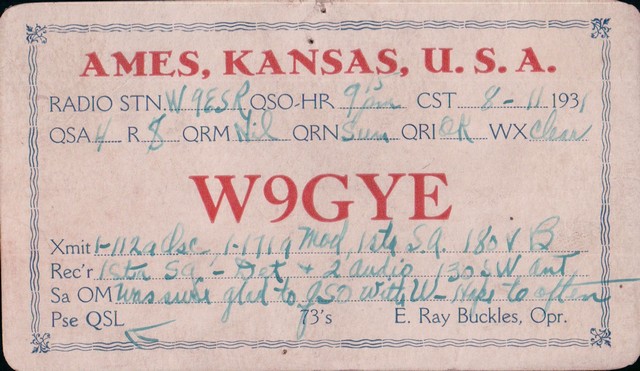 AMES, KANSAS, U. S. A.
RADIO STN. W9ESR QSO-HR 9:15 pm CST 8-11 1931
QSA 4 R 8 QRM Nil QRN Sum QRI OK WX Clear
W9GYE
Xmit 1-112a Osc, 1-171a Mod 1stg S.a. 180 V B
Rec'r 1stg Sg. - Det + 2 audio 130 SW ant,
Sa OM was sure glad to QSO with U - Hope to often
Pse QSL 73's E. Ray Buckles, Opr.